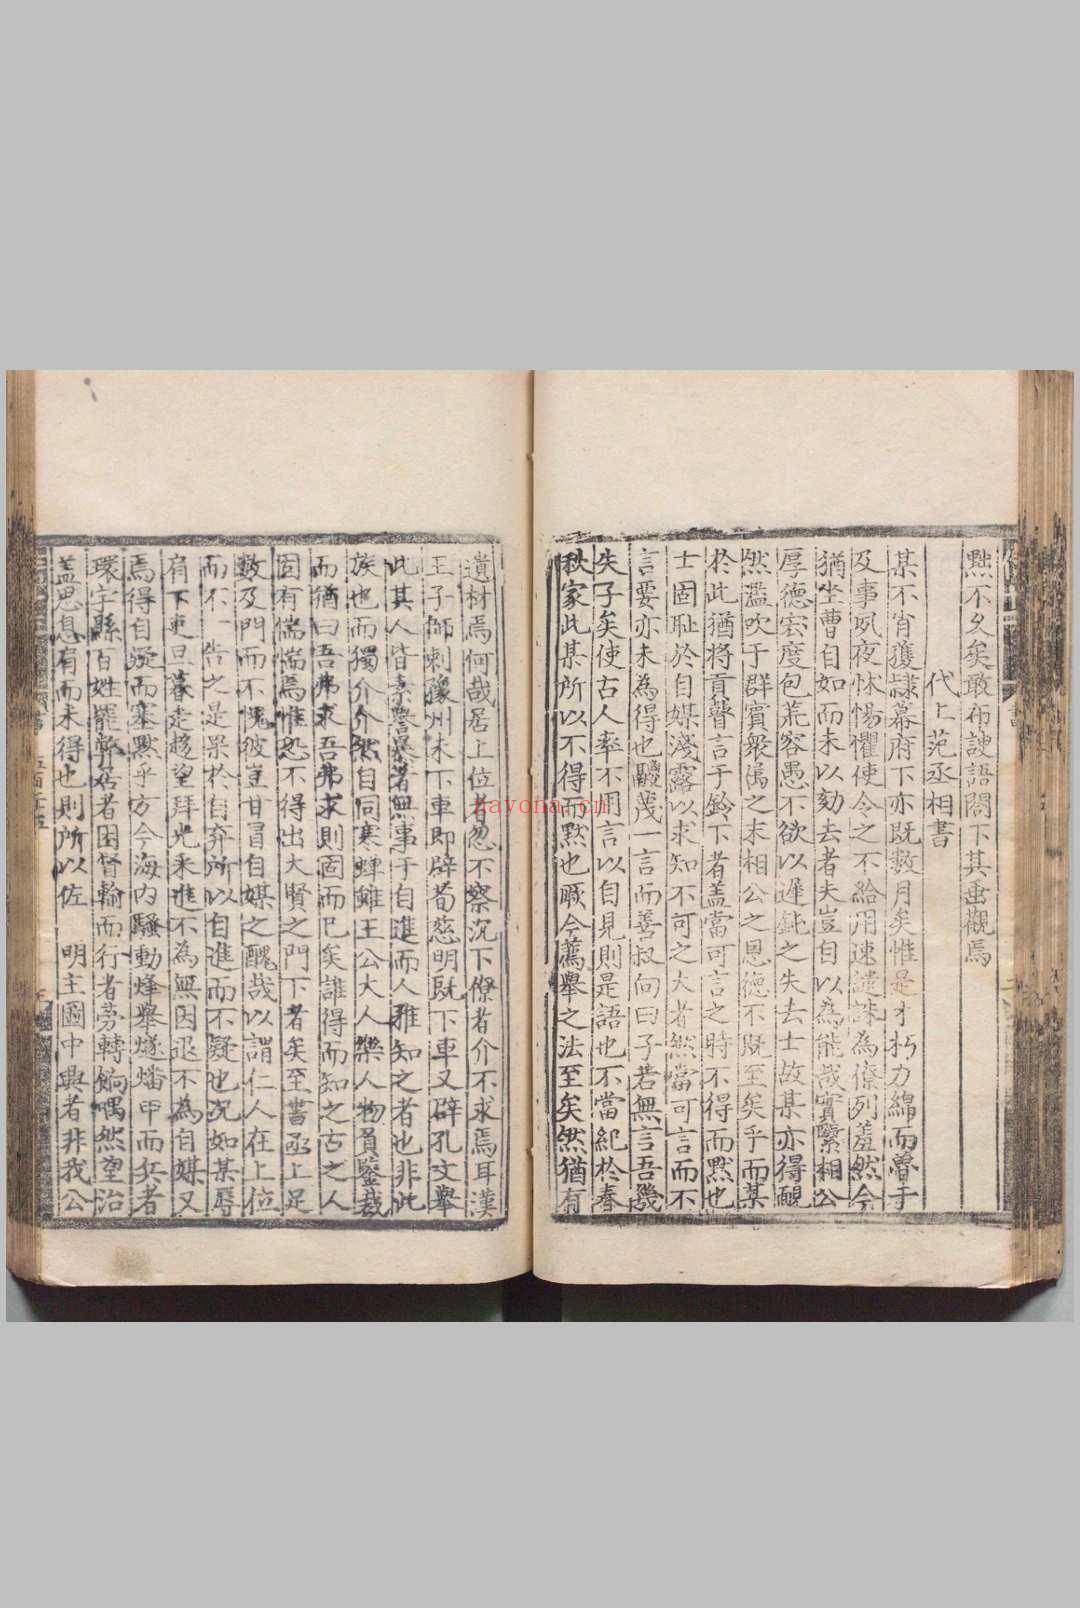 黙不久矣敢布諛語閤下其垂觀焉
代上范丞相書
某不肖獲隷幕府下亦既數月矣惟是才朽力綿而魯于
及事夙夜怵惕懼使令之不給用速譴誅為僚列羞然今
猶坐曹自如而未以劾去者夫豈自以為能哉實繄相公
厚德宏度包荒容愚不欲以遲鈍之失去士故某亦得靦
然濫吹于群賓衆儁之末相公之恩德不既至矣乎而某
於此猶將貢瞽言于鈴下者盖當可言之時不得而黙也
士固耻於自媒淺露以求知不可之大者然當可言而不
言要亦未為得也鬷蔑一言而善叔向曰子若無言吾幾
失子矣使古人率不用言以自見則是語也不當紀於春
秋家此某所以不得而黙也厥今薦舉之法至矣然猶有
遺材焉何哉居上位者忽不察沉下僚者介不求焉耳漢
王子師刺豫州未下車即辟荀慈明既下車又辟孔文舉
此其人皆素譽暴著無事于自進而人雅知之者也非此
族也而獨介介然自同寒蟬雖王公大人樂人物員鑒裁
而猶曰吾弗求吾弗求則固而已矣誰得而知之古之人
固有惴惴焉惟恐不得出大賢之門下者矣至書亟上足
數及門而不愧彼豈甘冒自媒之醜哉以謂仁人在上位
而不一告之是果於自弃所以自進而不疑也况如某辱
肩下吏旦暮走趍望拜光釆進不為無因退不為自媒又
焉得自疑而塞黙乎方今海内騷動烽舉燧燔甲而兵者
環宇縣百姓罷弊居者困督輸而行者勞轉餉喁然望治
盖思息肩而未得也則所以佐 明主圖中興者非我公
书
nayona.cn